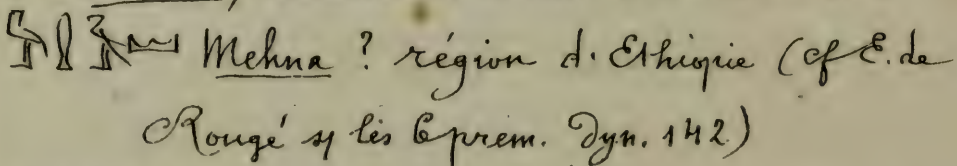 Mehna ? région d. Ethiopie (cf E. de
Rougé les 6 prem. Dyn. 142)